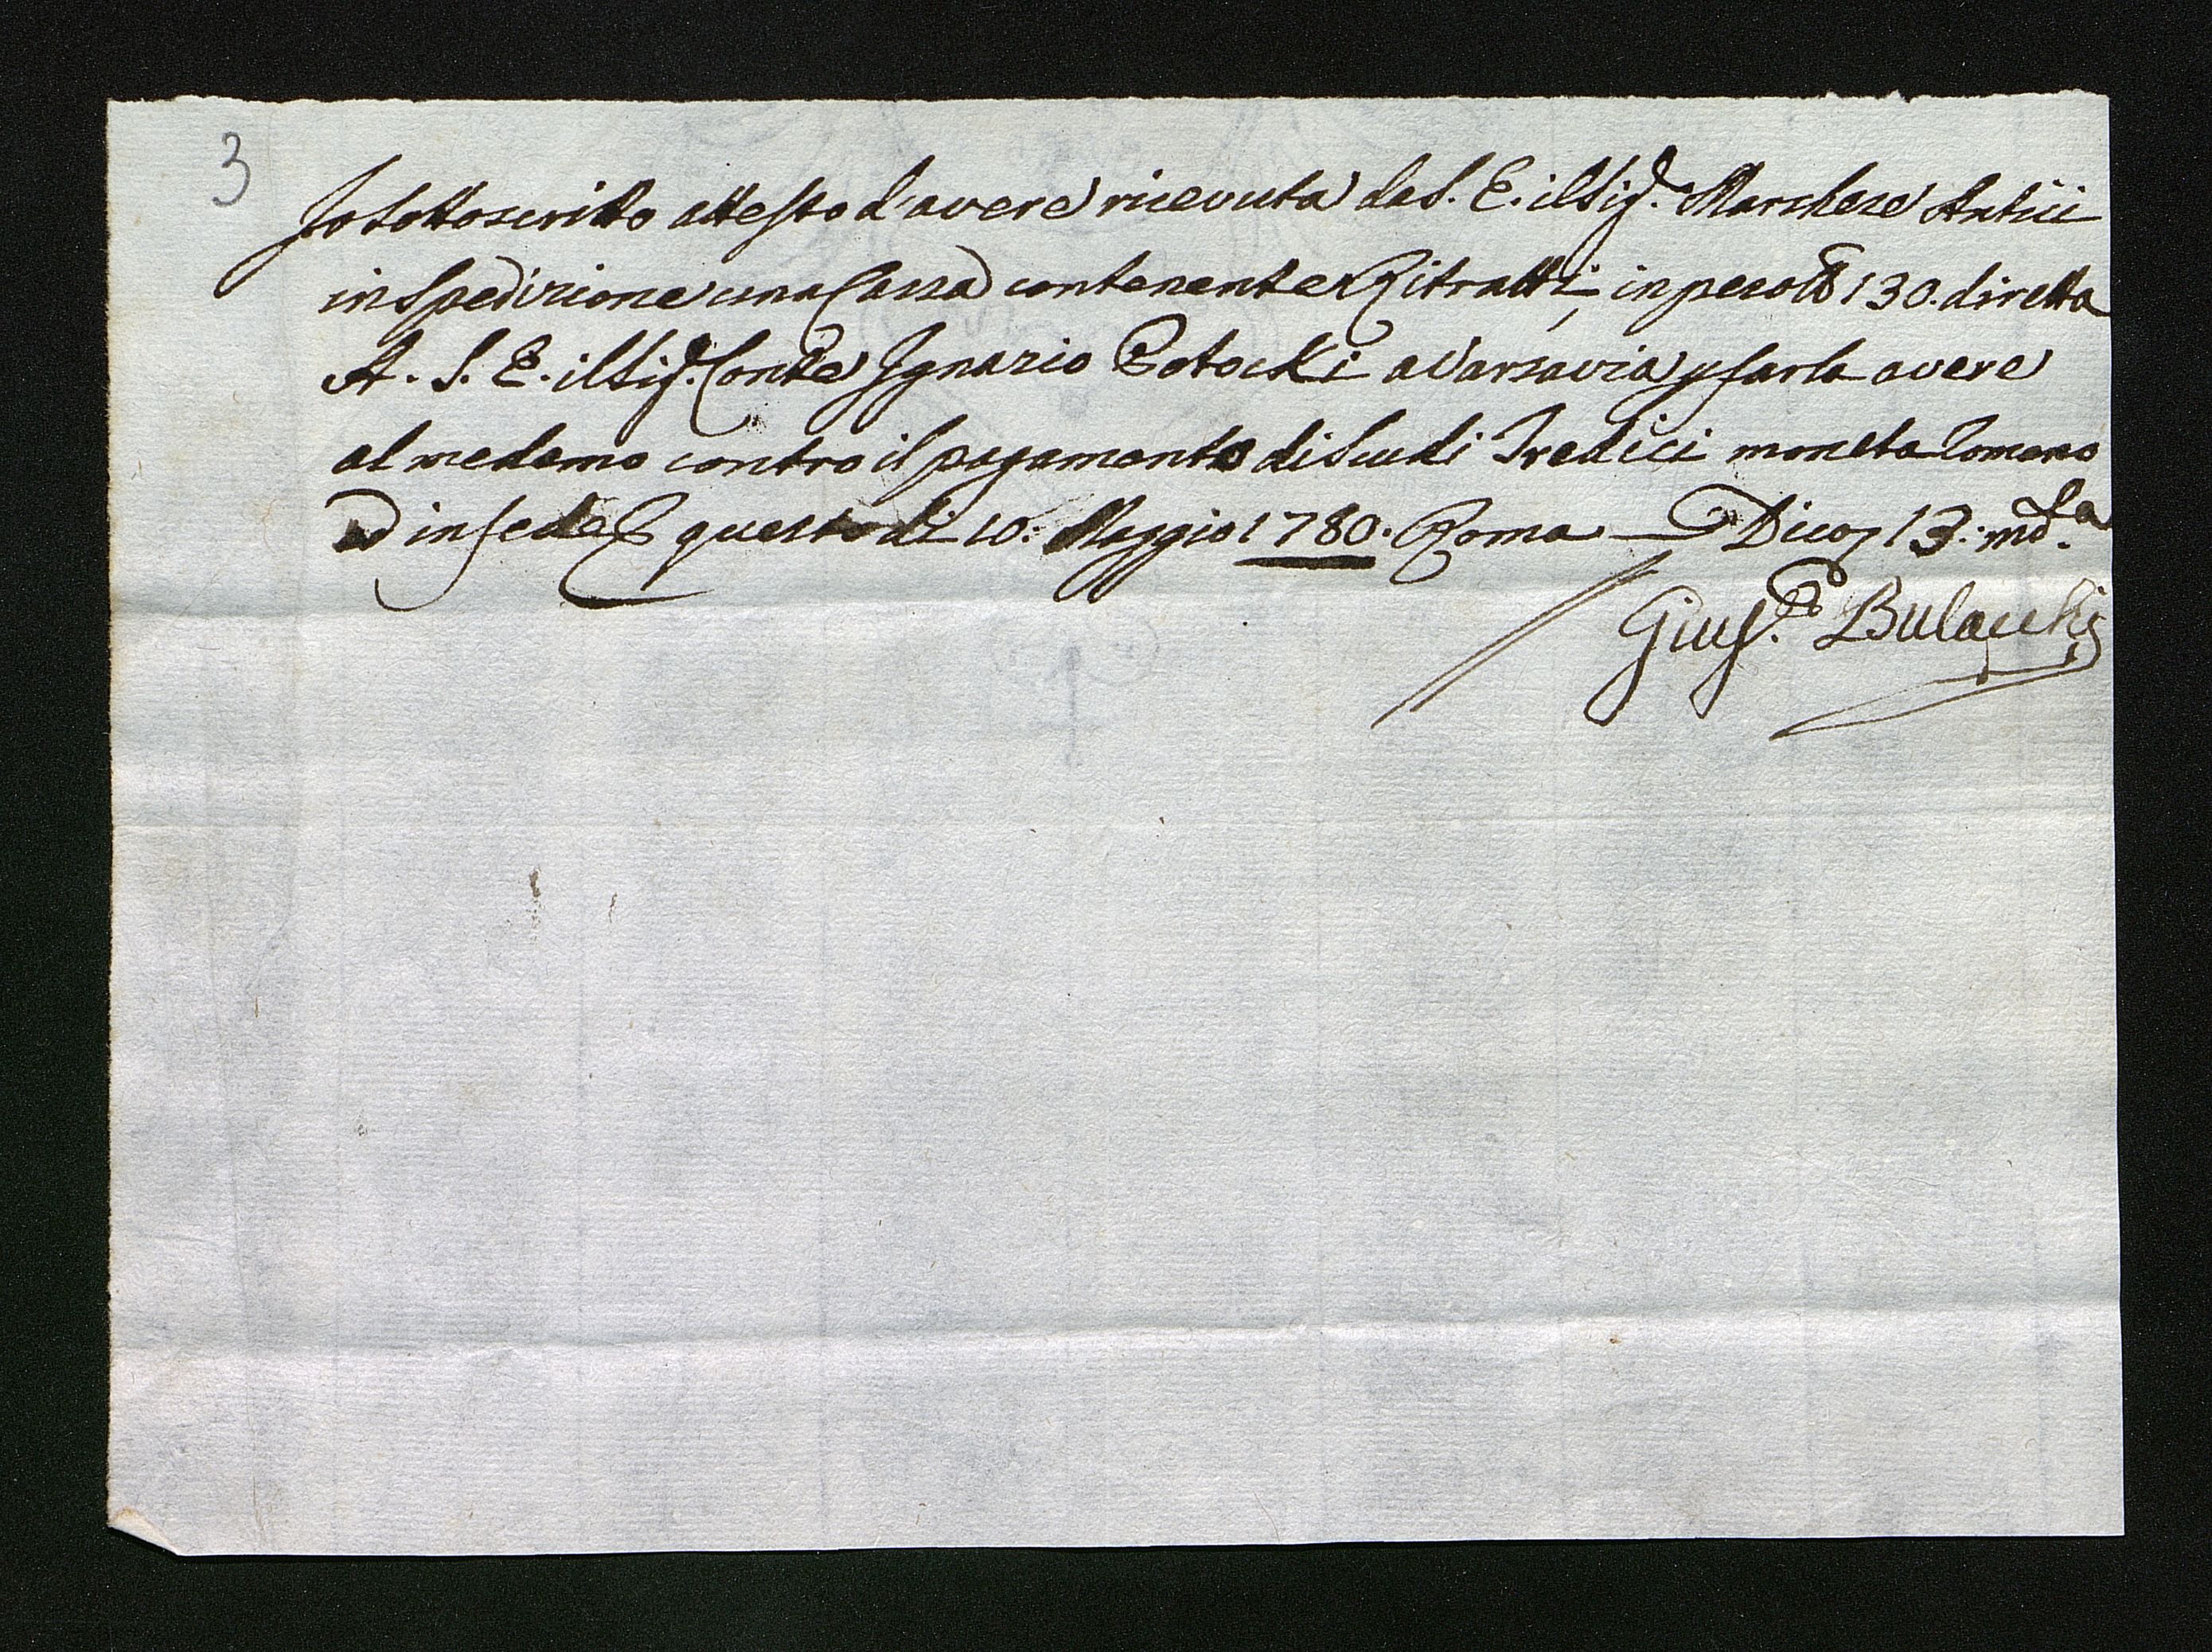 3
Io sottoscritto attesto d'avere ricevuta da S. E. il Sig.r Marchese Antici
in Spedizione una Cassa contenente Ritratti, in peso 130. diretta
A. S. E. il Sig.r Conte Ignazio Potocki a Varsavia p farla avere
al medemo contro il pagamento di Scudi Tredici moneta Romana
ed in fede questo di 10: Maggio 1780. Roma — Dico 13: md.ta
Gius.e Bulacchi